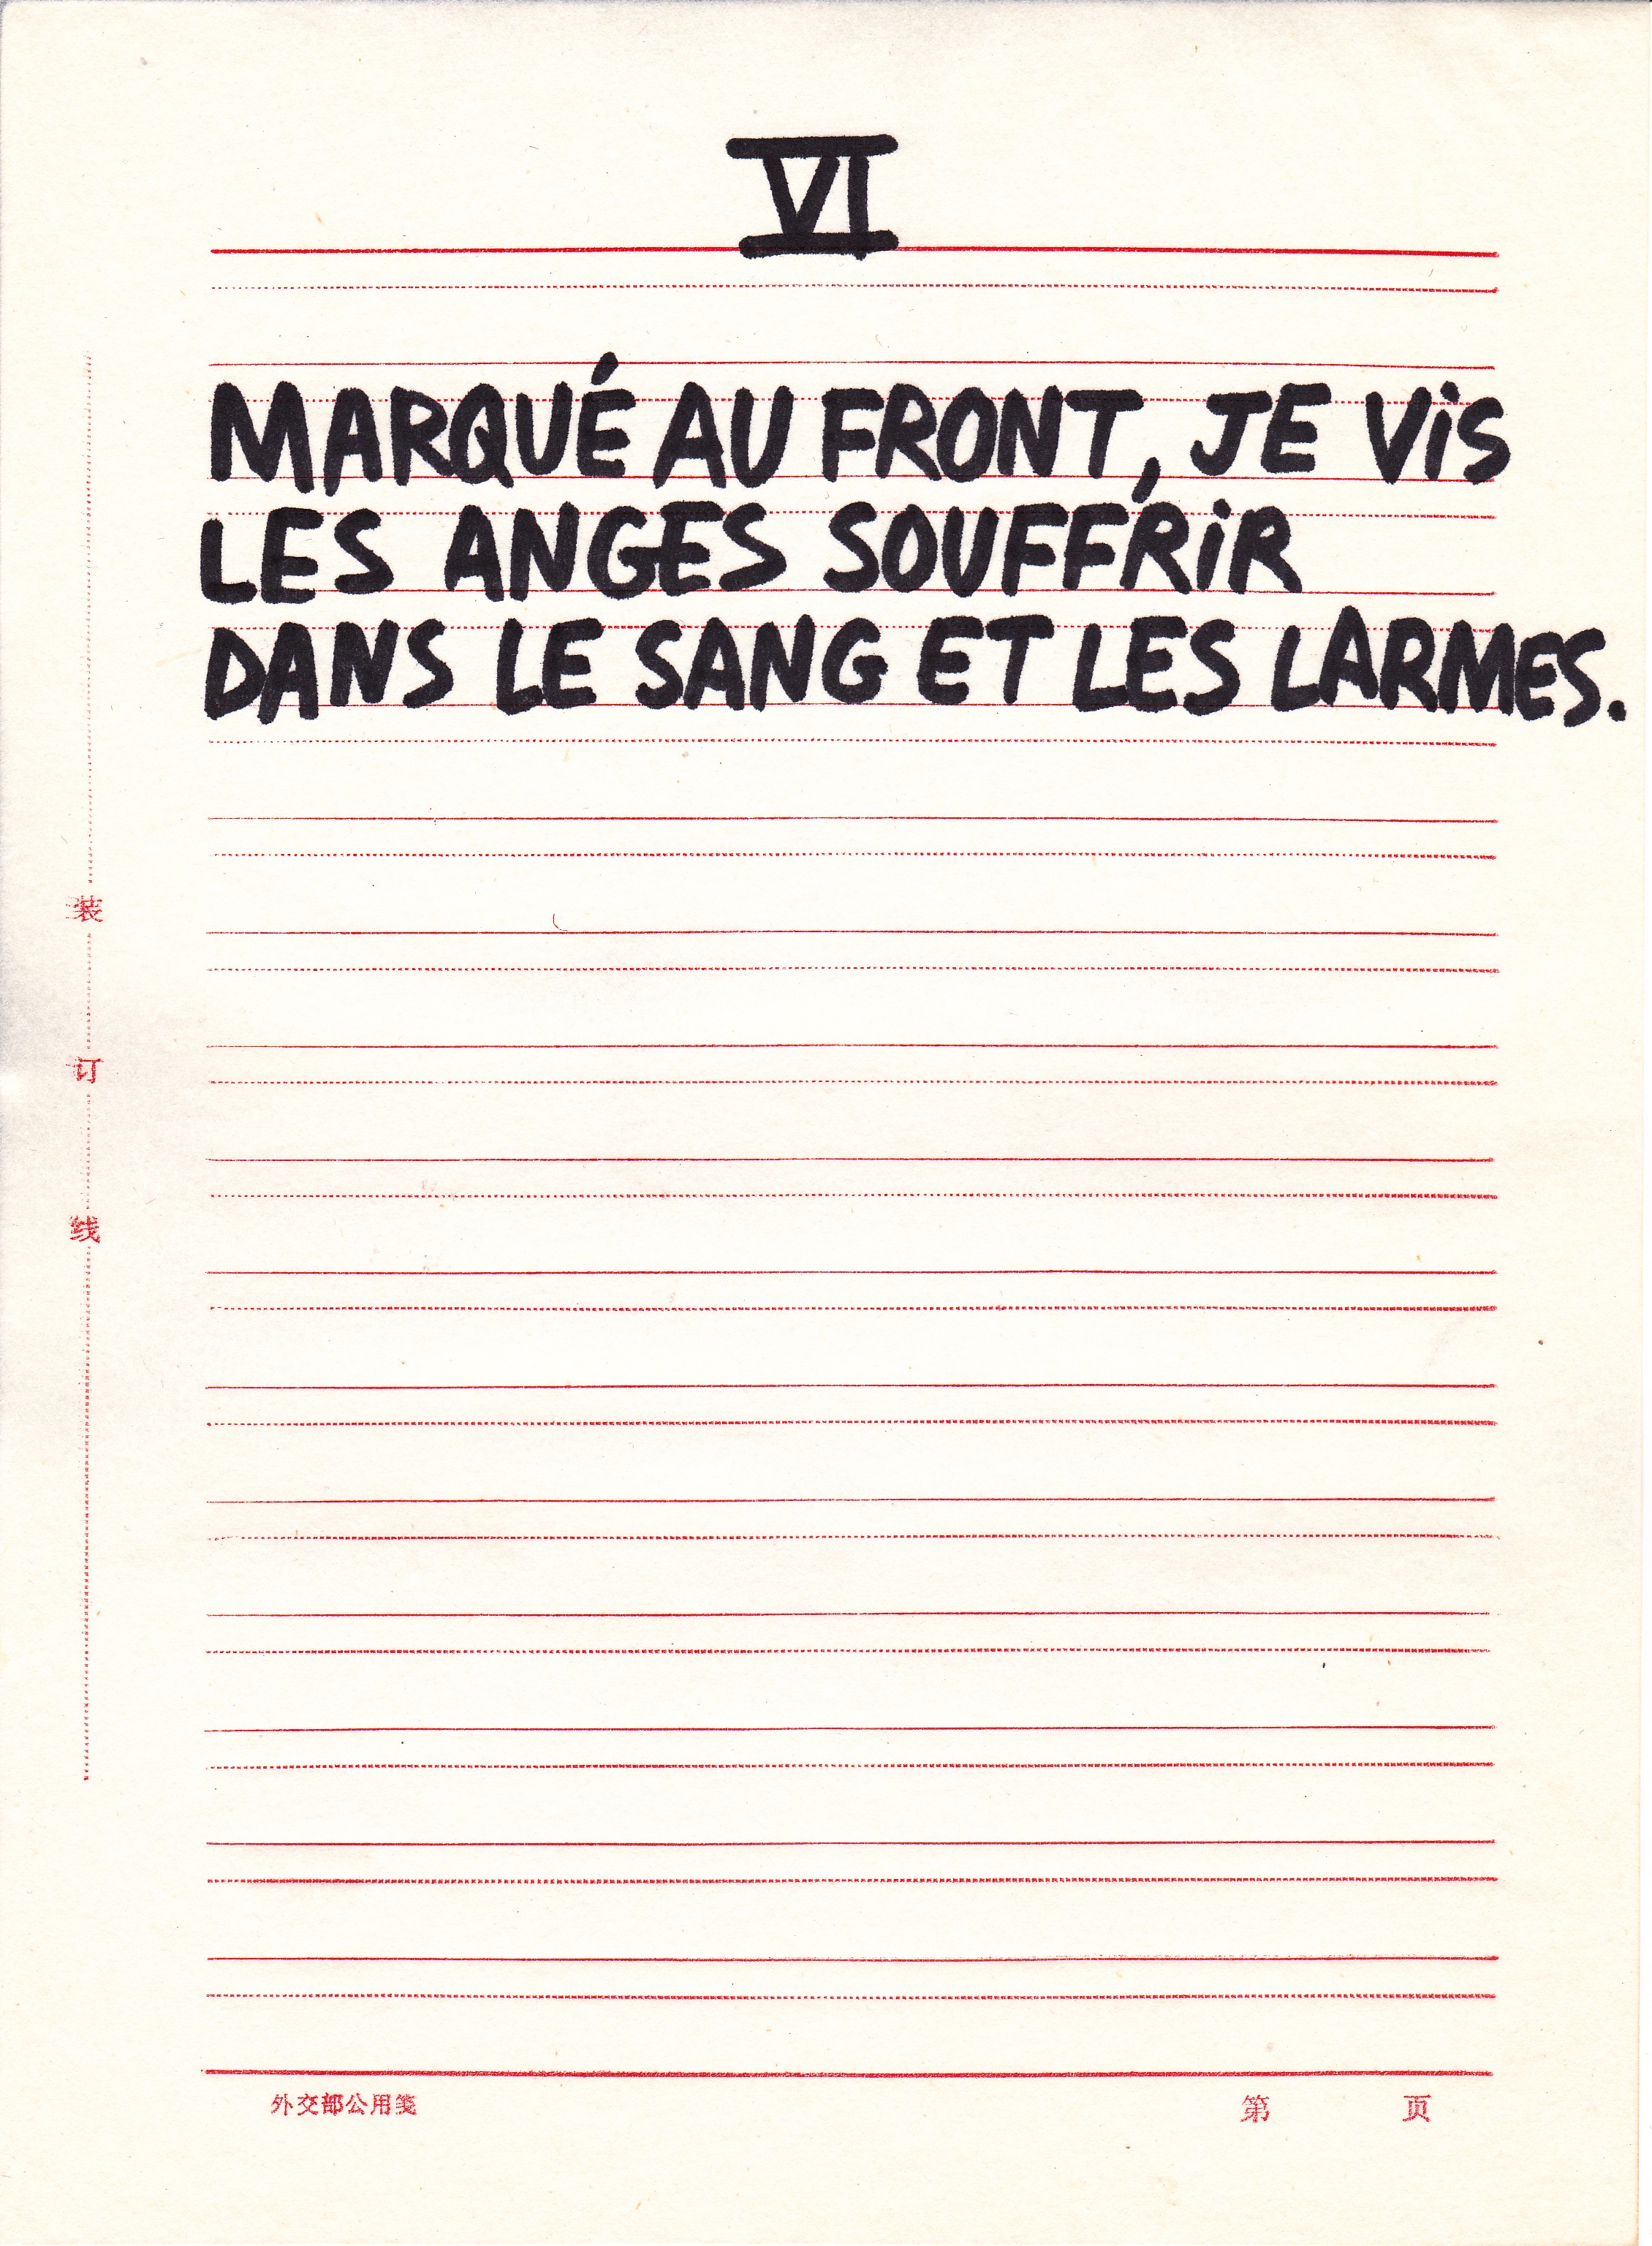 VI
MARQUÉ AU FRONT, JE ViS
LES ANGES SOUFFRiR
DANS LE SANG ET LES LARMES.
装
订
线
外交部公用笺
第 页